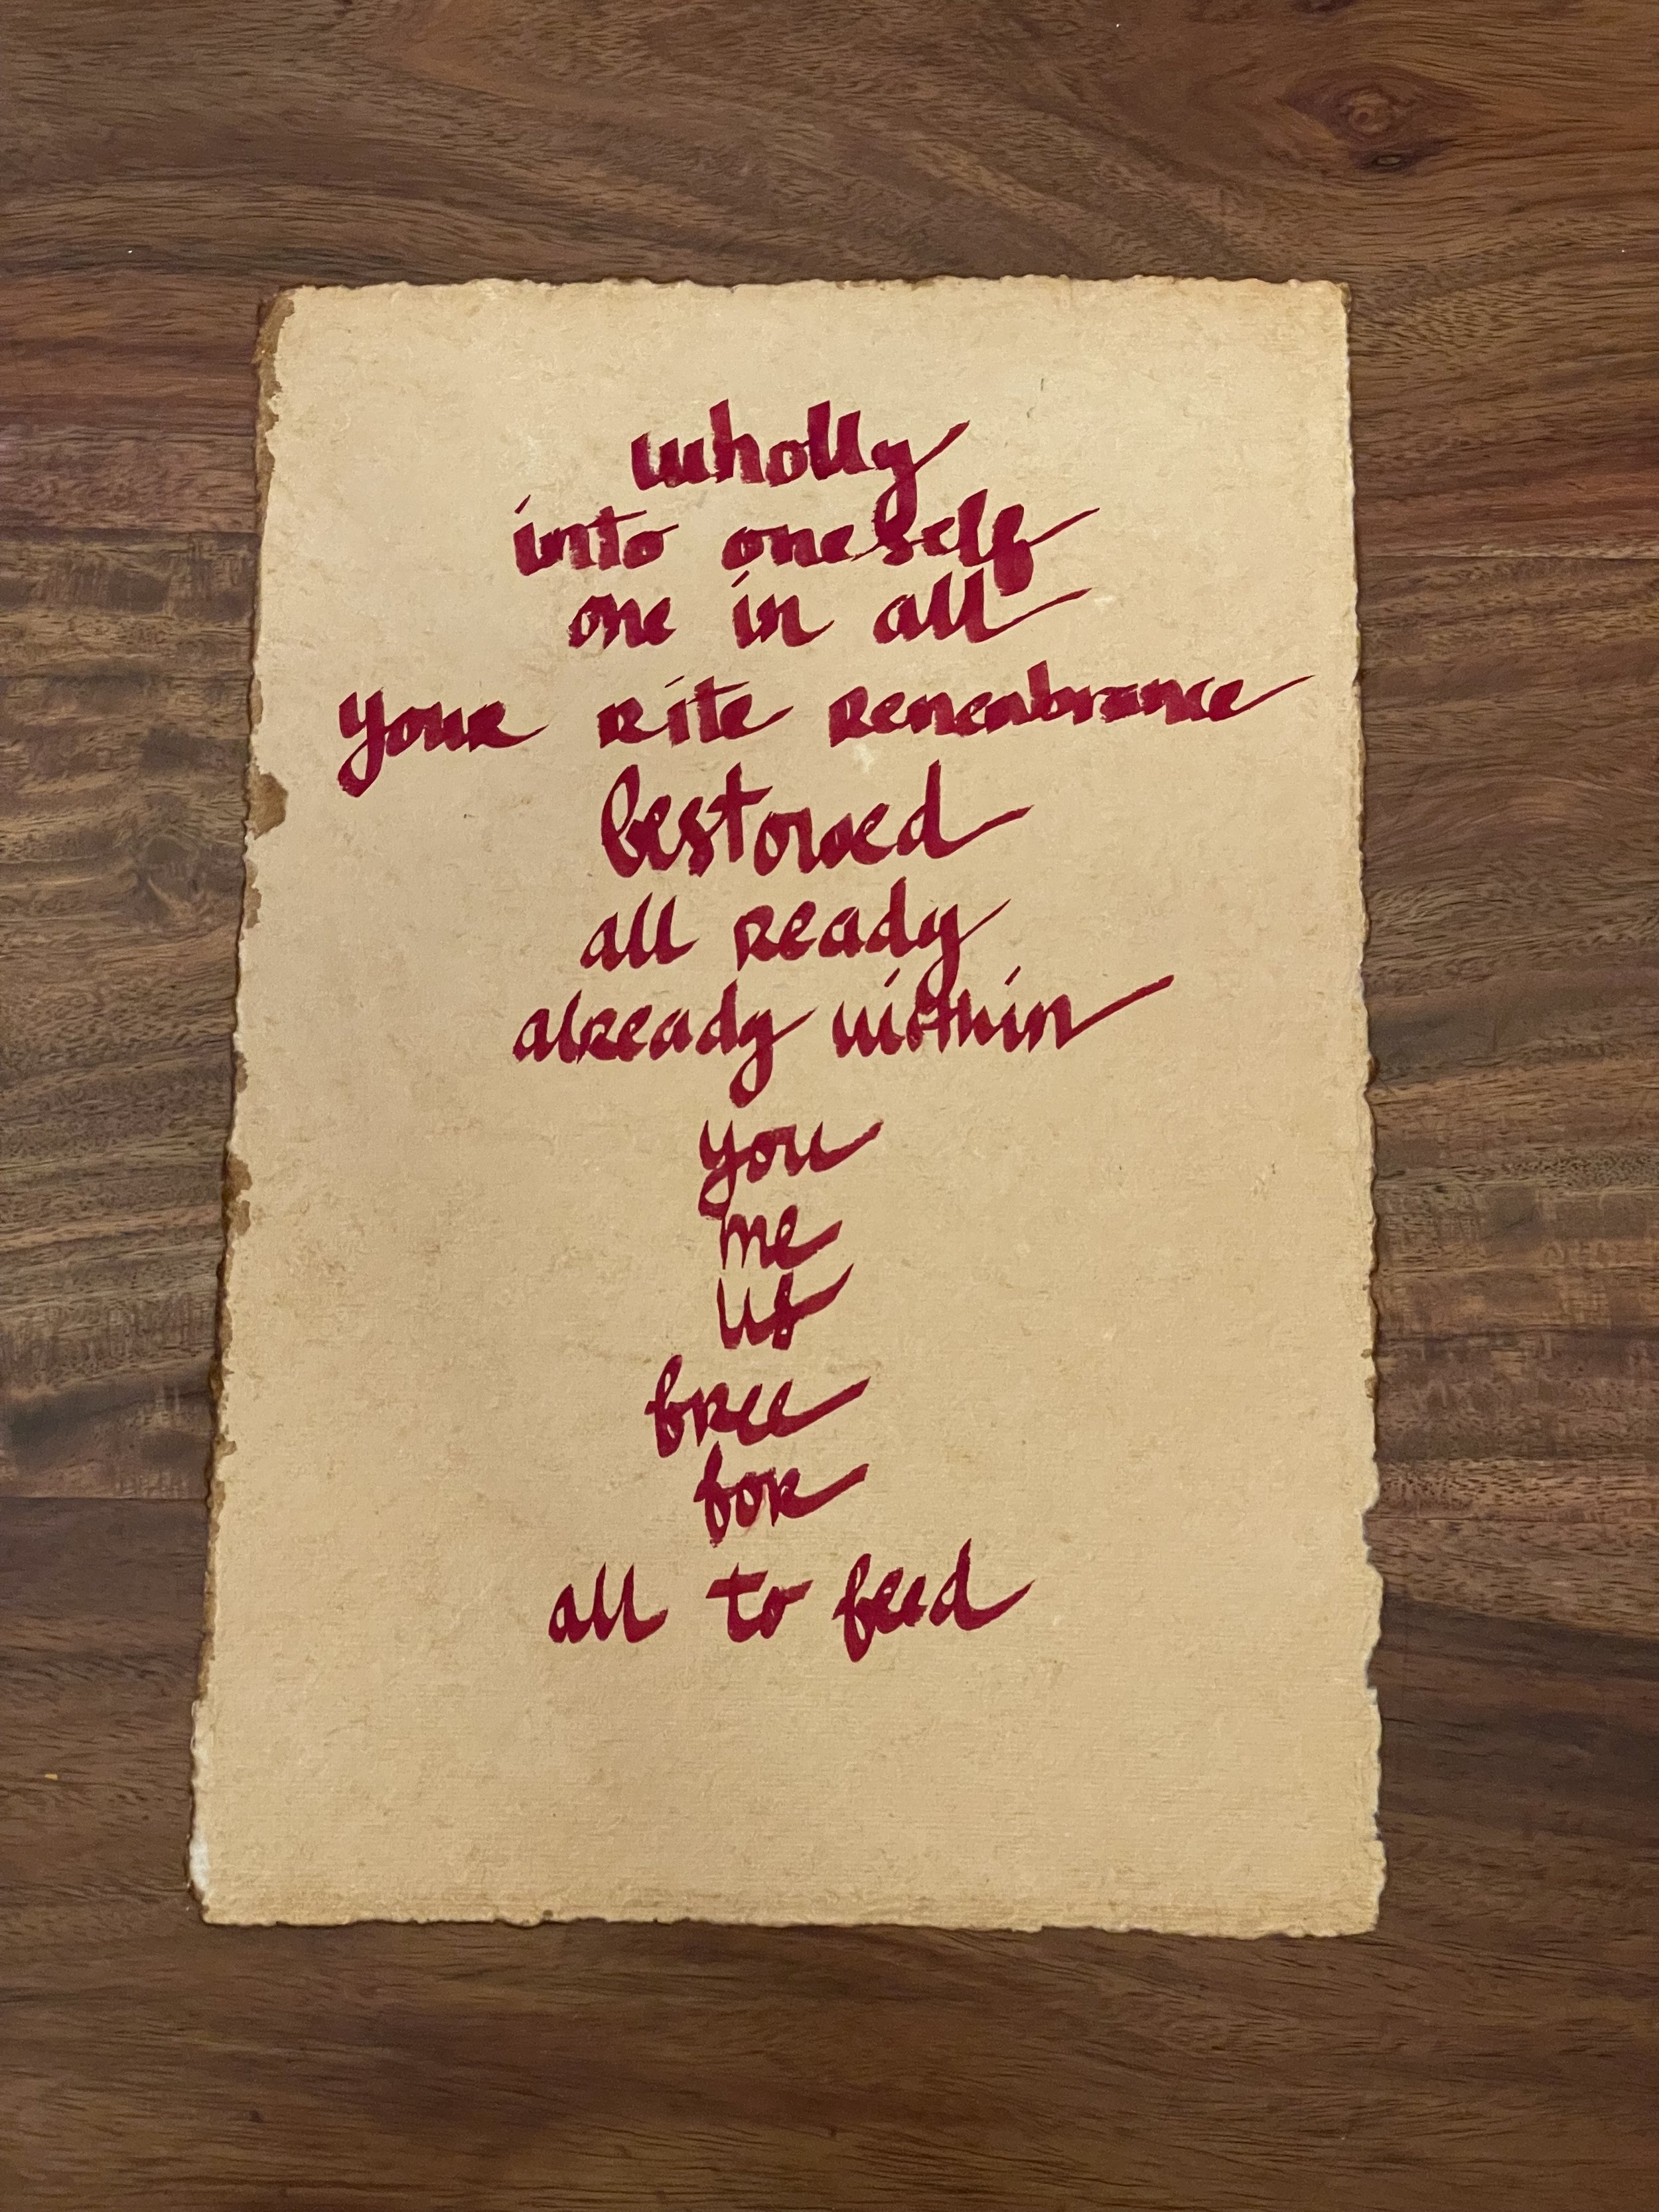 wholly
into oneself
one in all
your rite remembrance
bestowed
all ready
already within
you
me
us
free
for
all to feed